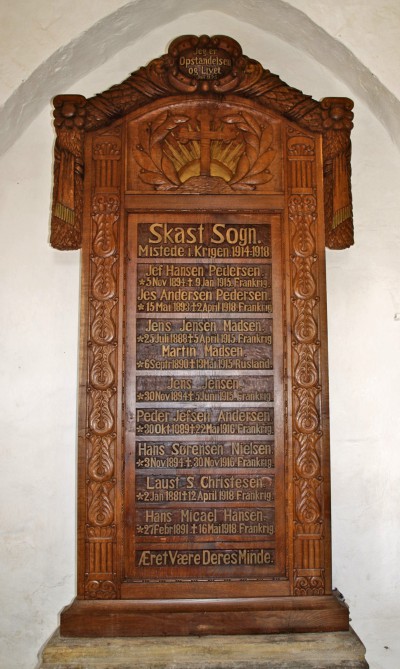 Jeg er
Opstandelsen
og Livet
Skast Sogn.
Mistede i Krigen 1914-1918
Jef Hansen Pedersen
*5 Nov 1894 ✝ 9 Jan 1915 Frankrig
Jes Andersen Pedersen
*15 Mai 1893 ✝ 2 April 1918 Frankrig
Jens Jensen Madsen
*25 Juli 1888 ✝ 5 April 1915 Frankrig
Martin Madsen
*6 Sept 1890 ✝ 19 Mai 1915 Rusland
Jens Jensen
*30 Nov 1894 ✝ 5 Juni 1915 Frankrig
Peder Jefsen Andersen
*30 Okt 1889 ✝ 22 Mai 1916 Frankrig
Hans Sørensen Nielsen
*3 Nov 1894 ✝ 30 Nov 1916 Frankrig
Laust S Christesen
*2 Jan 1881 ✝ 12 April 1918 Frankrig
Hans Micael Hansen
*27 Febr 1891 ✝ 16 Mai 1918 Frankrig
Æret Være Deres Minde.